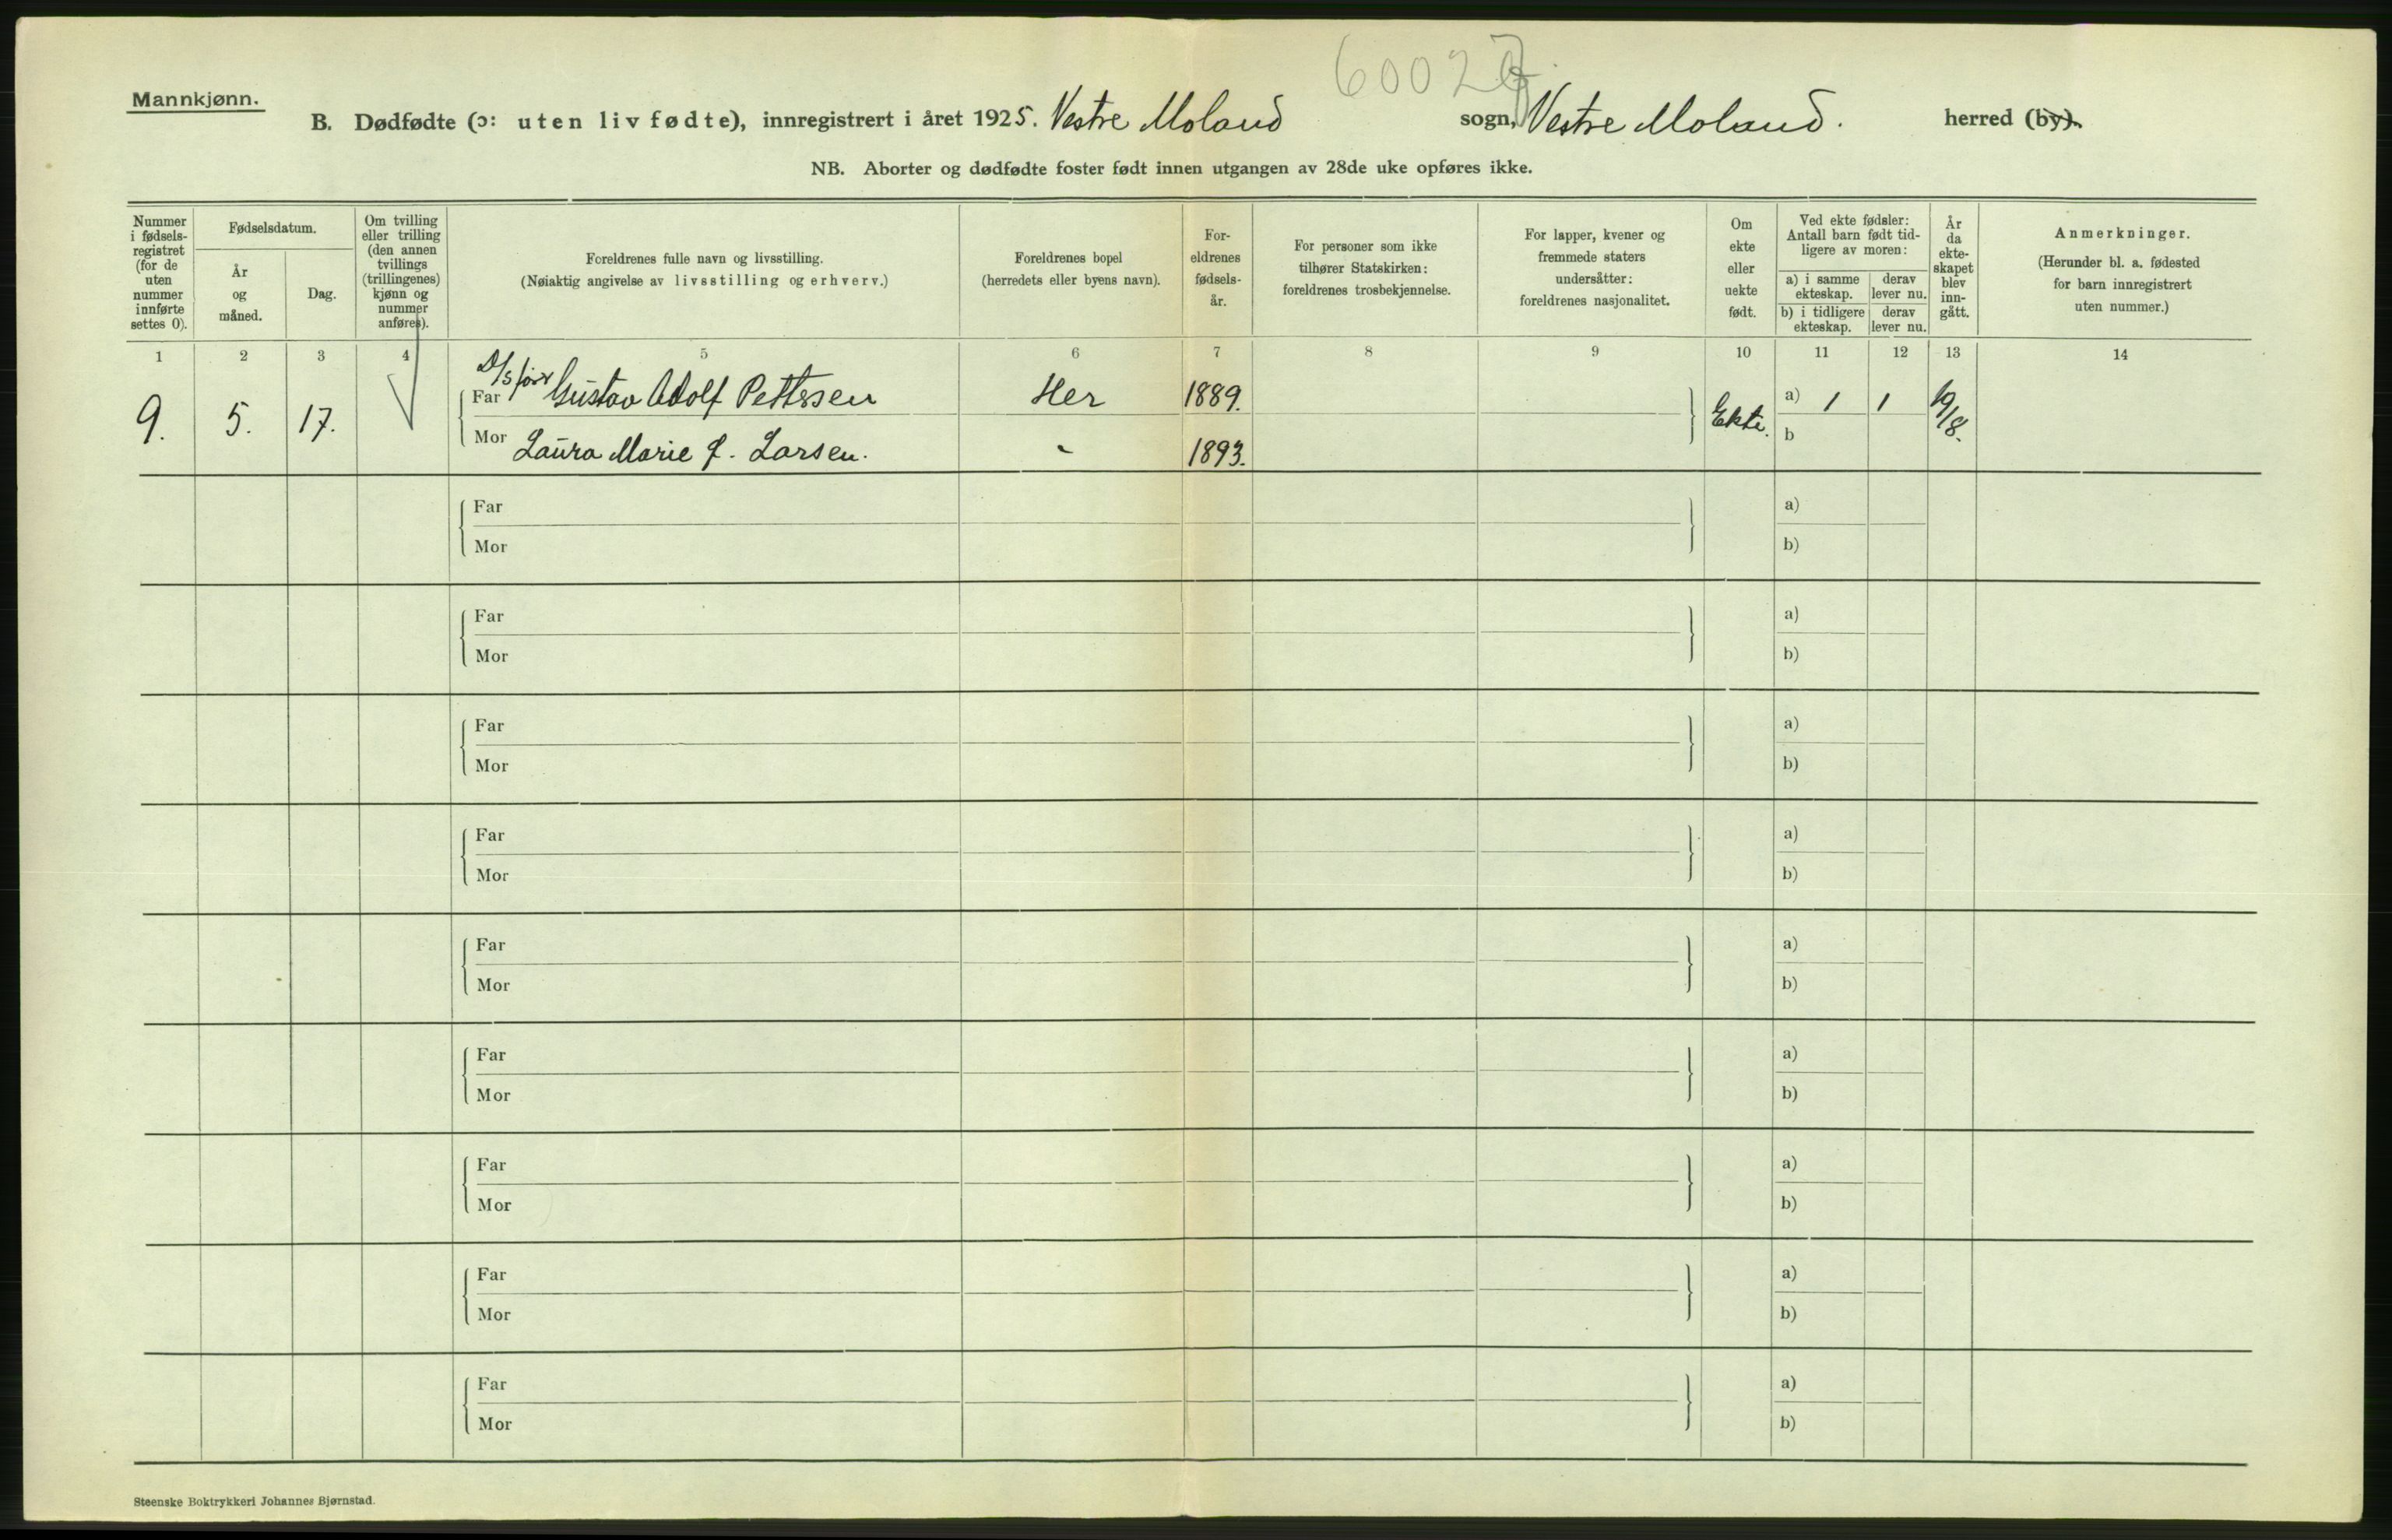 6002
Mannkjønn.
B. Dødfødte (ɔ: uten liv fødte), innregistrert i året 1925. Vestre Moland sogn, Vestre Moland. herred (by).
NB. Aborter og dødfødte foster født innen utgangen av 28de uke opføres ikke.
Nummer i fødsels-registret (for de uten nummer innførte settes 0).
Fødselsdatum.
År og måned.
Dag.
Om tvilling eller trilling (den annen tvillings (trillingenes) kjønn og nummer anføres).
Foreldrenes fulle navn og livsstilling.
(Nøiaktig angivelse av livsstilling og erhverv.)
Foreldrenes bopel
(herredets eller byens navn).
For-eldrenes fødsels-år.
For personer som ikke tilhører Statskirken: foreldrenes trosbekjennelse.
For lapper, kvener og fremmede staters undersåtter: foreldrenes nasjonalitet.
Om ekte eller uekte født.
Ved ekte fødsler: Antall barn født tid-ligere av moren:
a) i samme ekteskap.
derav lever nu.
b) i tidligere ekteskap.
derav lever nu.
År da ekte-skapet blev inn-gått.
Anmerkninger.
(Herunder bl. a. fødested for barn innregistrert uten nummer.)
1 2 3 4 5 6 7 8 9 10 11 12 13 14
D/s fører
9. 5. 17. Far Gustav Adolf Pettersen Her 1889. Ekte. a) 1 1 19/18.
Mor Laura Marie f. Larsen. - 1893. b
Far a)
Mor b)
Far a)
Mor b)
Far a)
Mor b)
Far a)
Mor b)
Far a)
Mor b)
Far a)
Mor b)
Far a)
Mor b)
Far a)
Mor b)
Far a)
Mor b)
Steenske Boktrykkeri Johannes Bjørnstad.